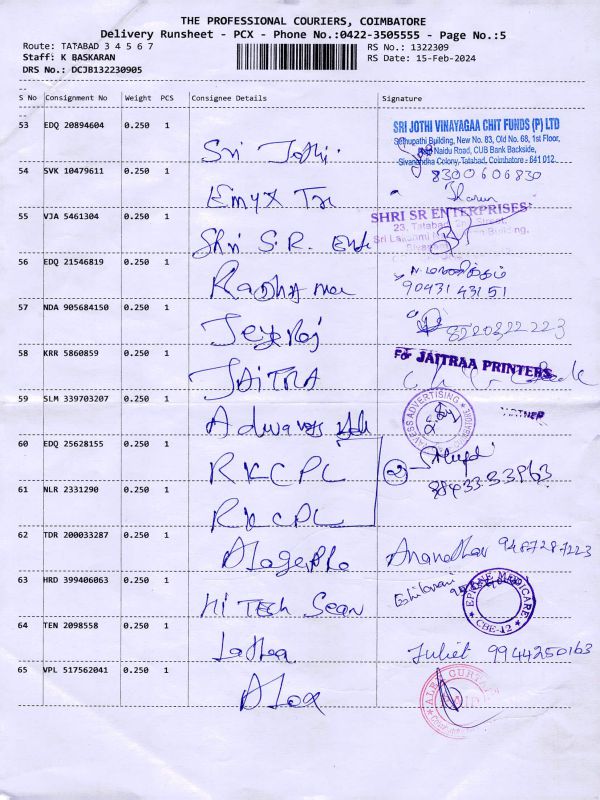 THE PROFESSIONAL COURIERS, COIMBATORE
Delivery Runsheet - PCX - Phone No.:0422-3505555 - Page No.:5
Route: TATABAD 3 4 5 6 7 RS No.: 1322309
Staff: K BASKARAN RS Date: 15-Feb-2024
DRS No.: DCJB132230905
S No Consignment No Weight PCS Consignee Details Signature
53 EDQ 20894604 0.250 1
SRI JOTHI VINAYAGAA CHIT FUNDS (P) LTD
Building, New No. 83, Old No. 68, 1st Floor,
Naidu Road, CUB Bank Backside,
Sivanandha Colony, Tatabad, Coimbatore - 641 012.
Sri Jothi
8300606830
54 SVK 10479611 0.250 1
Emyx
55 VJA 5461304 0.250 1
SHRI SR ENTERPRISES
23, Tatabad, Street,
Sri Lakshmi Building,
Shri S.R.
56 EDQ 21546819 0.250 1
Radha
9043143151
57 NDA 905684150 0.250 1
Jeyaraj 8220322223
58 KRR 5860859 0.250 1
For JAITRAA PRINTERS
JAITRA
59 SLM 339703207 0.250 1
ADVERTISING
PARTNER
60 EDQ 25628155 0.250 1
RKCPL
2
61 NLR 2331290 0.250 1
RKCPL
62 TDR 200033287 0.250 1
Anandhan 9487287223
63 HRD 399406063 0.250 1
Hi Tech
EPIONE MEDICARE
CBE-12
64 TEN 2098558 0.250 1
Juliet 9944250163
65 VPL 517562041 0.250 1